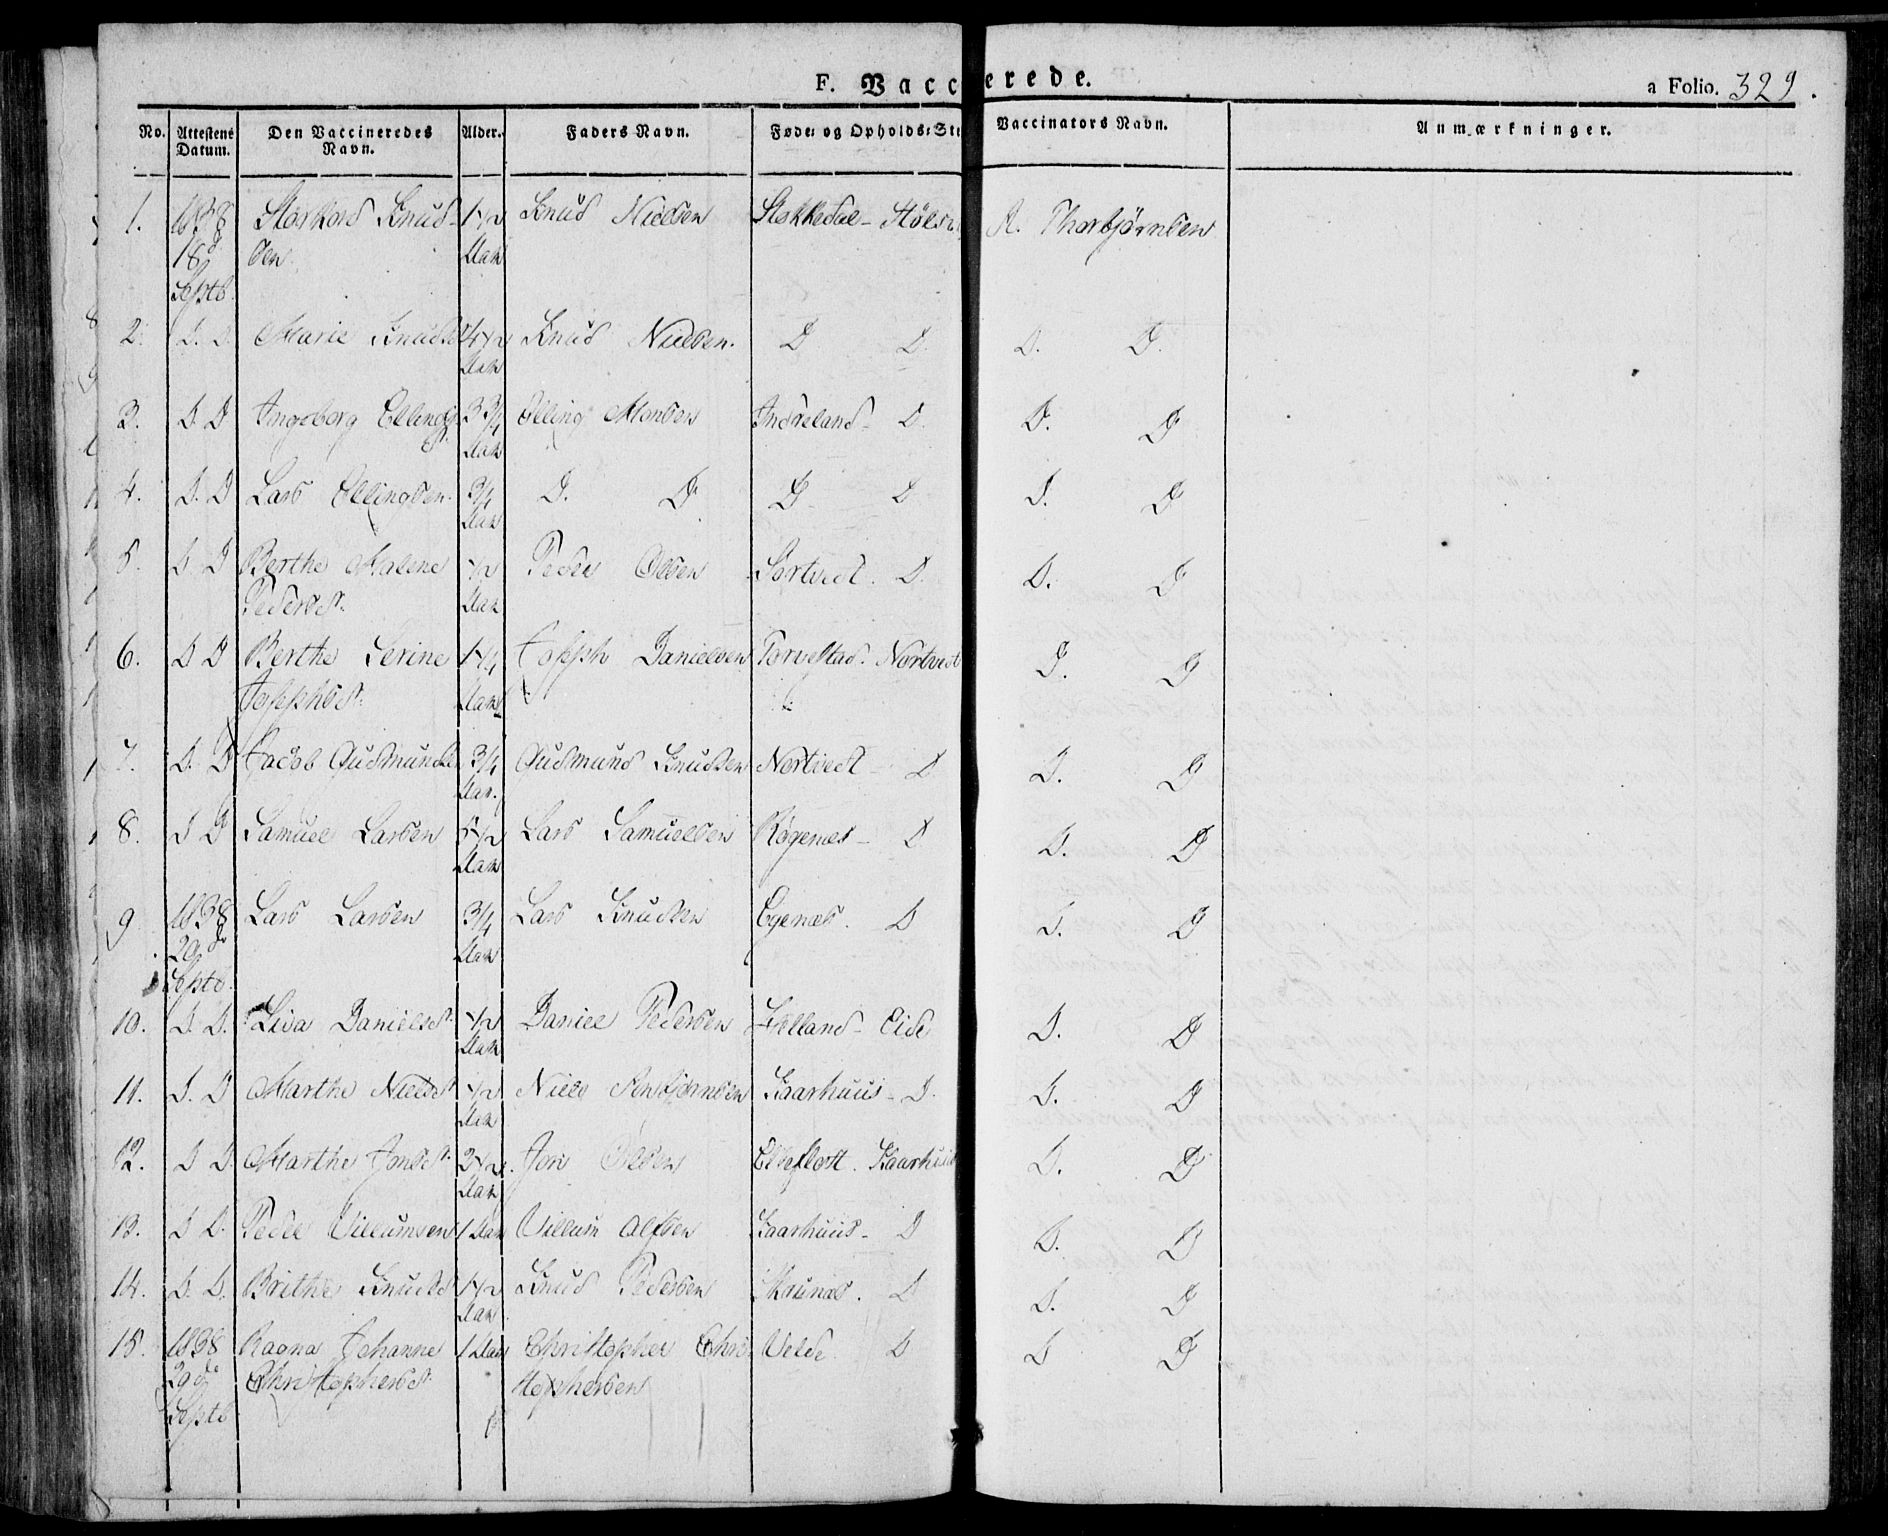 F. Vaccinerede.
a Folio. 329.
No. Attestens Datum. Den Vaccineredes Navn. Alder. Faders Navn. Føde- og Opholds-Ste Vaccinators Navn. Anmærkninger.
1. 1838 Knud- 1 1/2 Knud Nielsen Stokkedal - A. Thorbjørnsen
18d sen Aar
Septb.
2. D. D. Marie Knudsd 4 1/2 Knud Nielsen. D D. D. D.
Aar
3. D. D Ingeborg Ellingsd. 3 3/4 Elling Monsen Indreland - D. D. D
Aar
4. D. D Lars Ellingsen. 3/4 D. D D D D. D
Aar
5. D. D Berthe Malene 1/2 Peder Olsen Sortvedt. D. D. D
Pedersd. Aar
6. D D Berthe Serine 1 1/4 Joseph Danielsen Torvestad. Nortvedt D. D
Josephsd. Aar
7. D. D Jacob Gudmunds 3/4 Gudmund Knudsen Nortvedt - D D. D
Aar.
8. D D Samuel Larsen 5 1/2 Lars Samuelsen Røgenæs - D D. D
Aar
9 1838 Lars Larsen 3/4 Lars Knudsen Egenæs. D D. D
29de Aar
Septb.
10. D. D. Lisa Danielsd. 1/2 Daniel Pedersen Helland - Eide D. D
Aar
11. D. D Marthe Nielsd 1/2 Niels Kaarhuus - D. D. D
Aar
12. D D. Marthe Jonsd. 2 1/2 Jon Olsen Kaarhuus D. D
Aar
13. D D. Peder Villumsen 1 Aar Villum Olsen Kaarhuus - D D. D
14. D. D. Brithe Knudsd 1 1/2 Knud Pedersen D D. D
Aar
15. 1838 Ragna Johanne 1 Aar Christopher Chri- Velde. D D D
29de Christophersd. stophersen
Septb